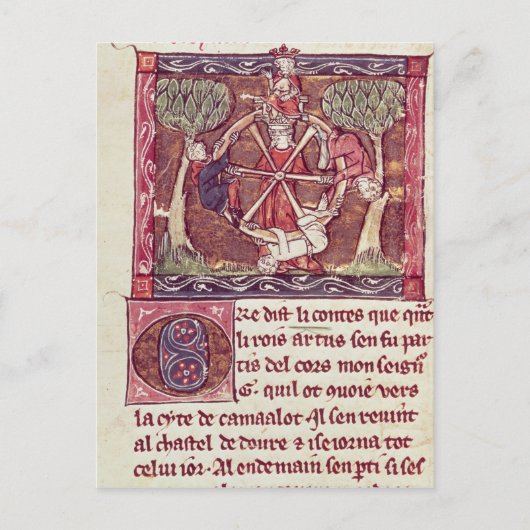 Ore dist li contes que qñt
li rois artus sen fu par
tis del cors mon seigñ
G. quil ot ēuoie vers
la cyte de camaalot. Al sen reuint
al chastel de doure & iseiorna tot
celui ior. Al endemain sen ꝑti si ses